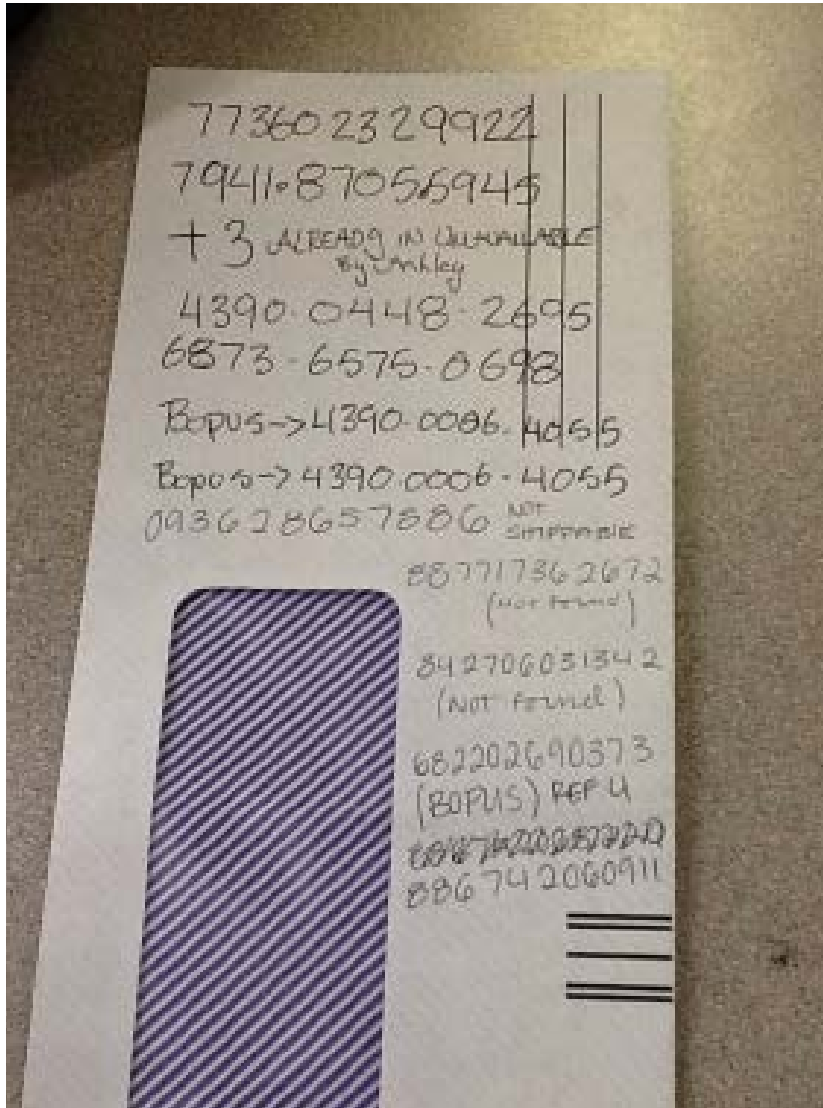 773602329922
7941.87056945
+3 ALREADY IN UNAVAILABLE
By Ashley
4390.0448.2695
6873-6575.0698
BOPUS->4390.0006.4055
BOPUS->4390.0006-4055
093628657886 NOT
SHIPPABLE
887717362672
(NOT Found)
842706031342
(NOT Found)
682202690373
(BOPUS) REF U
886742060911